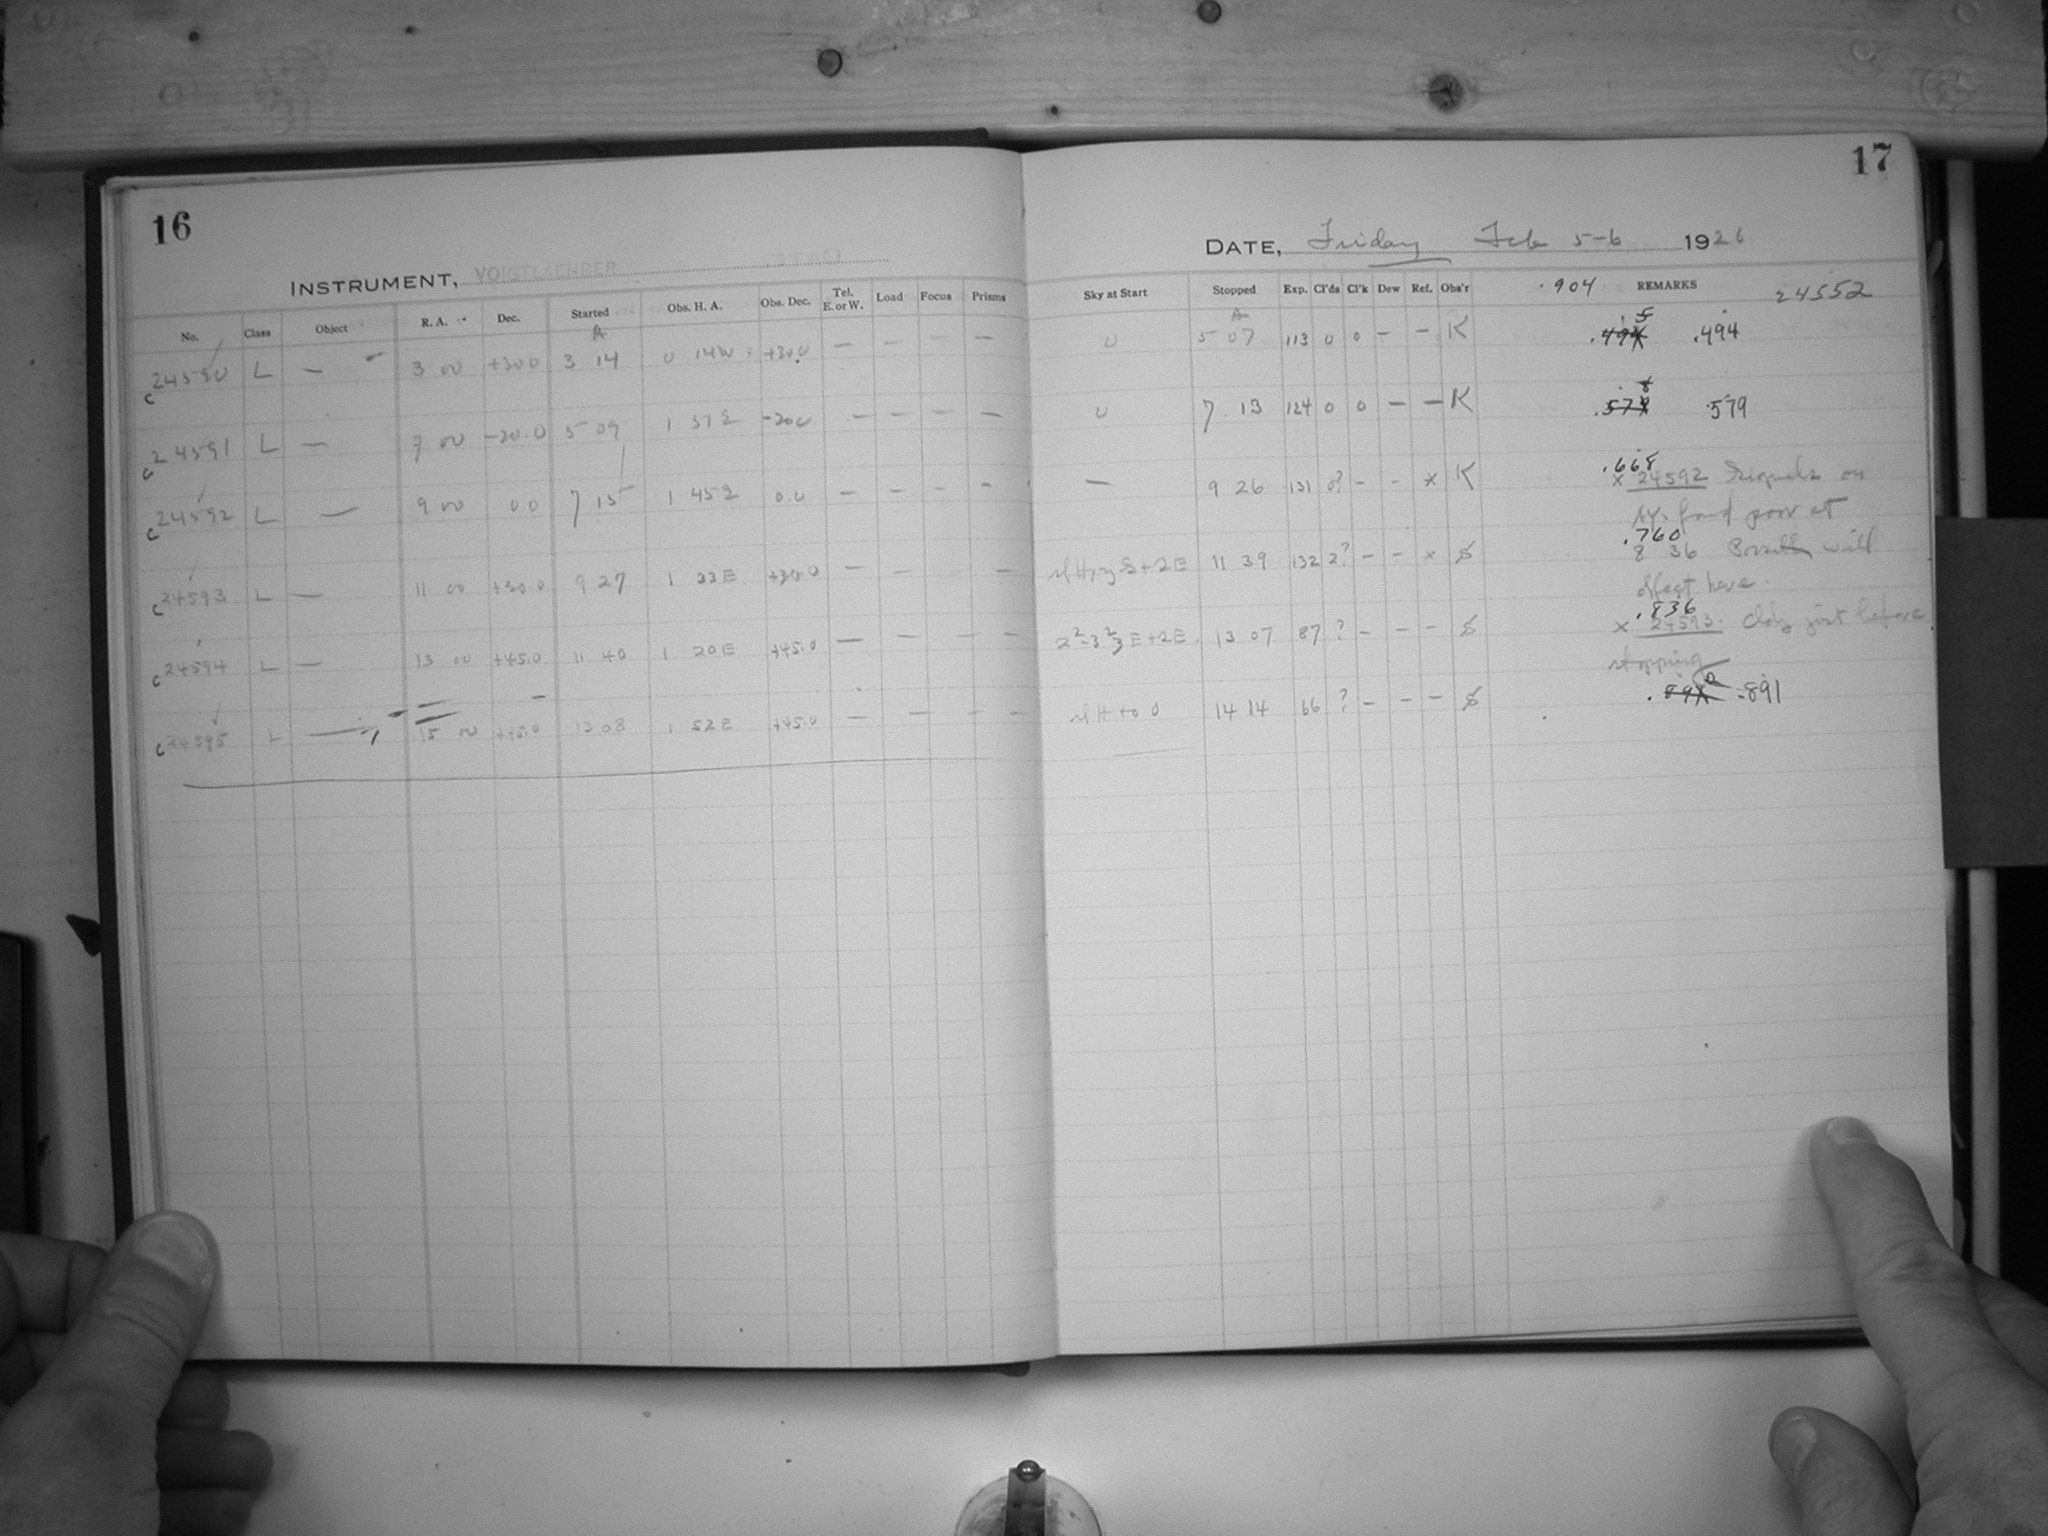 16
INSTRUMENT, VOIGTLAENDER
No. Class Object R. A. Dec. Started Obs. H. A. Obs. Dec. Tel. E. or W. Load Focus Prisms
A
c 24590 L — 3 00 +30.0 3 14 0 14W +30.0 — — — —
c 24591 L — 7 00 -20.0 5 09 1 51E -20.0 — — — —
c 24592 L — 9 00 0.0 7 15 1 45E 0.0 — — — —
c 24593 L — 11 00 +30.0 9 27 1 33E +30.0 — — —
c 24594 L — 13 00 +45.0 11 40 1 20E +45.0 — — — —
c 24595 L — 15 00 +45.0 13 08 1 52E +45.0 — — — —
17
DATE, Friday Feb 5-6 1926
Sky at Start Stopped Exp. Cl'ds Cl'k Dew Ref. Obs'r .904 REMARKS 24552
A
0 5 07 113 0 0 — — K .494
0 7 13 124 0 0 — — K .579
— 9 26 131 0? - - x K .668
x 24592 Signals on
found poor at
+2E 11 39 132 2? - - x S .760
8 36 will
affect here.
E+2E 13 07 87 ? - - - S .836
x 24593. Cldy just before
stopping
to 0 14 14 66 ? - - - S .891